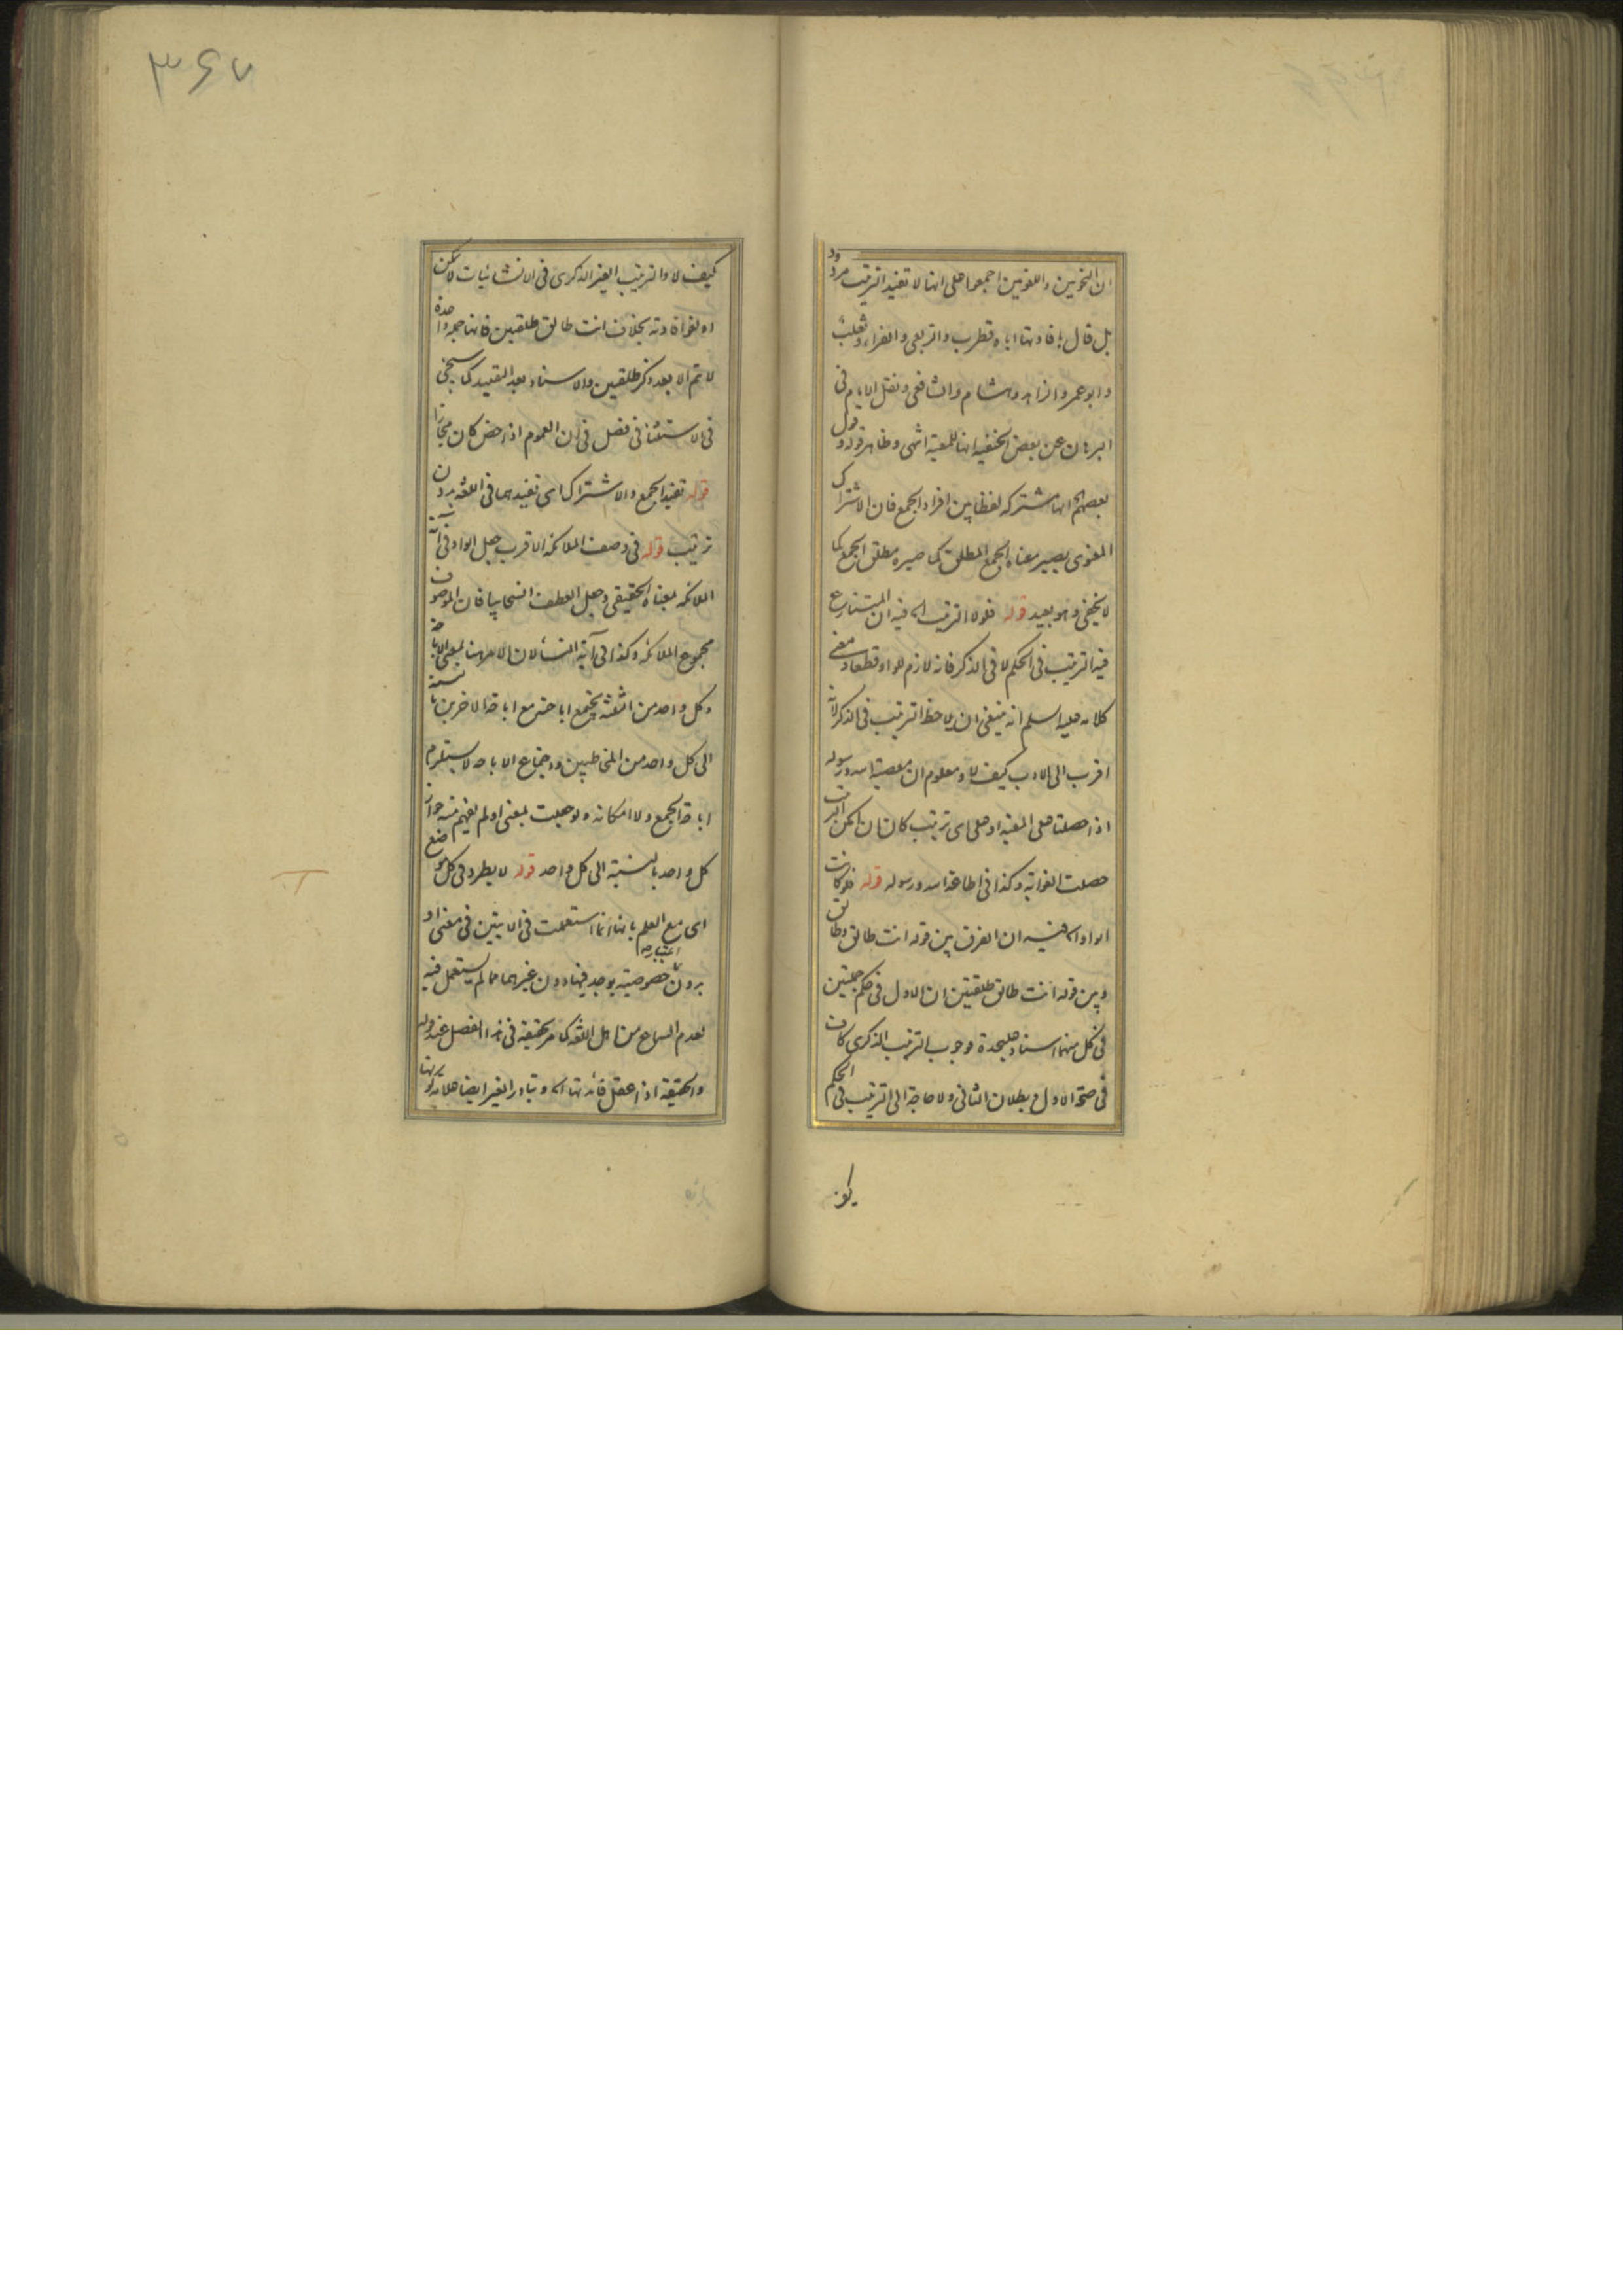 ان النحويين واللغويين اجمعوا على انها لا تفيد الترتيب مردود
بل قال بافادتها اياه قطرب والربعى والفراء وثعلب
وابو عمرو الزاهد وهشام والشافعى ونقل الامام فى
البرهان عن بعض الحنفية انها للمعية انتهى وظاهر قوله وقول
بعضهم انها مشتركه لفظا بين افراد الجمع فان الاشتراك
المعنوى يصير معناه الجمع المطلق كما صيره مطلق الجمع كما
لا يخفى وهو بعيد قوله فلولا الترتيب اه فيه ان المتنازع
فيه الترتيب فى الحكم لا فى الذكر فانه لازم للواو قطعا ومعنى
كلامه عليه السلم انه ينبغى ان يلاحظ الترتيب فى الذكر لانه
اقرب الى الادب كيف لا ومعلوم ان معصية الله ورسوله
اذا حصلتا على المعية او على اى ترتيب كان ان امكن الترتيب
حصلت الغواية وكذا فى اطاعة الله ورسوله قوله فلو كانت
الواو اه فيه ان الفرق بين قوله انت طالق وطالق
وبين قوله انت طالق طلقتين ان الاول فى حكم جملتين
فى كل منهما اسناد عليحدة فوجوب الترتيب الذكرى كاف
فى صحة الاول وبطلان الثانى ولا حاجة الى الترتيب فى الحكم
كيف
٣۶٧
كيف لا والترتيب الغير الذكرى فى الانشائيات لا يمكن
او لغو افادته بخلاف انت طالق طلقتين فانها جملة واحدة
لا تتم الا بعد ذكر طلقتين والاسناد بعد التقييد كما سيجئ
فى الاستثنا فى فصل فى ان العموم اذا خص كان مجازا
قوله تفيد الجمع والاشتراك اى تفيدهما فى اللغه بدون
ترتيب قوله فى وصف الملائكه الاقرب جعل الواو فى آية
الملائكه بمعناه الحقيقى وجعل العطف انسحابيا فان الموصوف
مجموع الملائكه وكذا فى آية النسا لان الامر هنا بمعنى الاباحة
وكل واحد من الثلثة يجتمع اباحته مع اباحة الاخرين بالنسبة
الى كل واحد من المخاطبين واجتماع الاباحه لا يستلزم
اباحة الجمع ولا امكانه ولو جعلت بمعنى او لم يفهم منه جواز
كل واحد بالنسبة الى كل واحد قوله لا يطرد فى كل موضع
اى مع العلم بانها انما استعملت فى الايتين فى معنى او
بدون اعتبار خصوصية يوجد فيها دون غيرهما مما لم يستعمل فيه
لعدم السماع من اهل اللغه كما مر تحقيقه فى هذا الفصل عند قوله
والحقيقه اذا عقل فائدتها اه وتبادر الغير ايضا علامة كونها